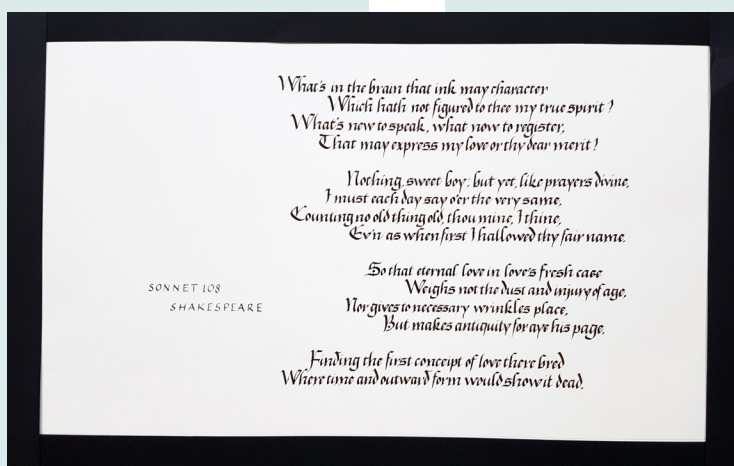 What's in the brain that ink may character
Which hath not figured to thee my true spirit?
What's new to speak, what now to register,
That may express my love or thy dear merit?
Nothing, sweet boy; but yet, like prayers divine,
I must each day say o'er the very same,
Counting no old thing old, thou mine, I thine,
Ev'n as when first I hallowed thy fair name.
So that eternal love in love's fresh case
Weighs not the dust and injury of age,
Nor gives to necessary wrinkles place,
But makes antiquity for aye his page,
Finding the first conceipt of love there bred
Where time and outward form would show it dead.
SONNET 108
SHAKESPEARE